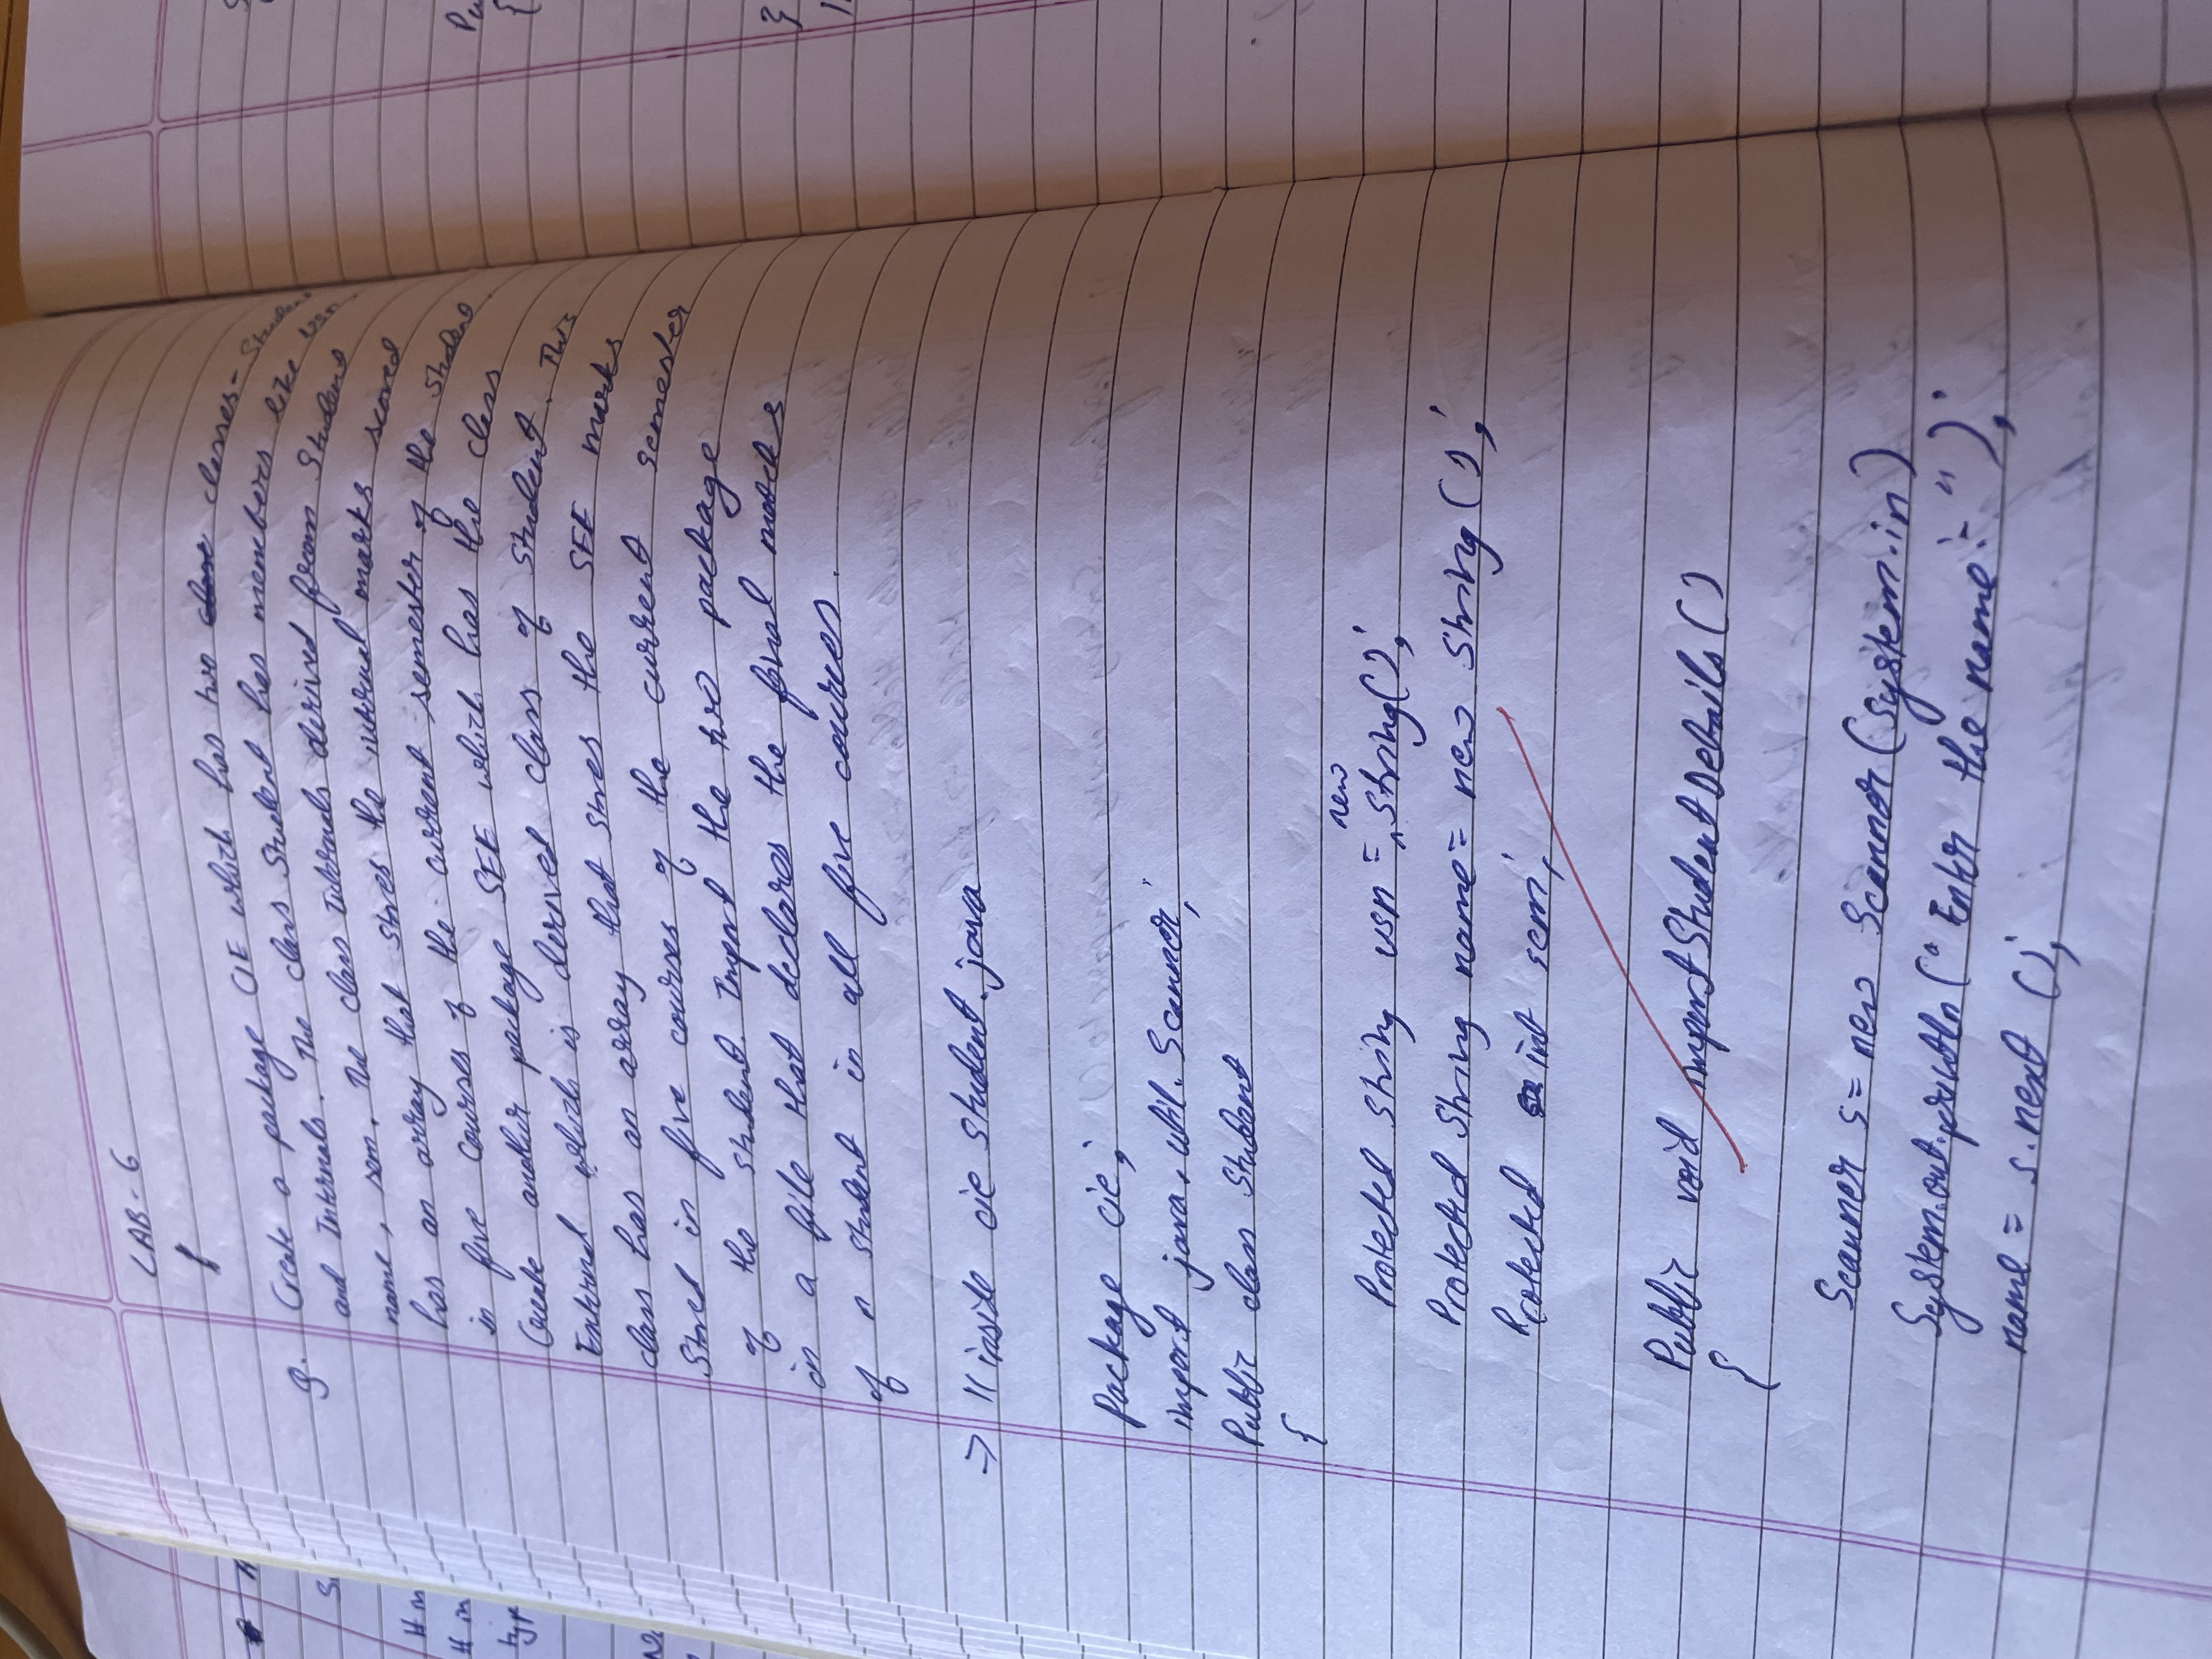 LAB - 6
Q. Create a package CIE which has two classes - Student
and Internals. The class Student has members like usn,
name, sem. The class Internals derived from Student
has an array that stores the internal marks scored
in five courses of the current semester of the student.
Create another package SEE which has the class
External which is derived class of Student. This
class has an array that stores the SEE marks
Stored in five courses of the current semester
of the student. Import the two package
in a file that declares the final marks
of n student in all five courses.
=> // inside cie Student.java
Package cie;
import java.util.Scanner;
Public class Student
{
Protected String usn = new String();
Protected String name = new String();
Protected int sem;
Public void importStudentDetails()
{
Scanner s = new Scanner(System.in)
System.out.println("Enter the name :- ");
name = s.next();
# in
# in
typ
Pu
{
}